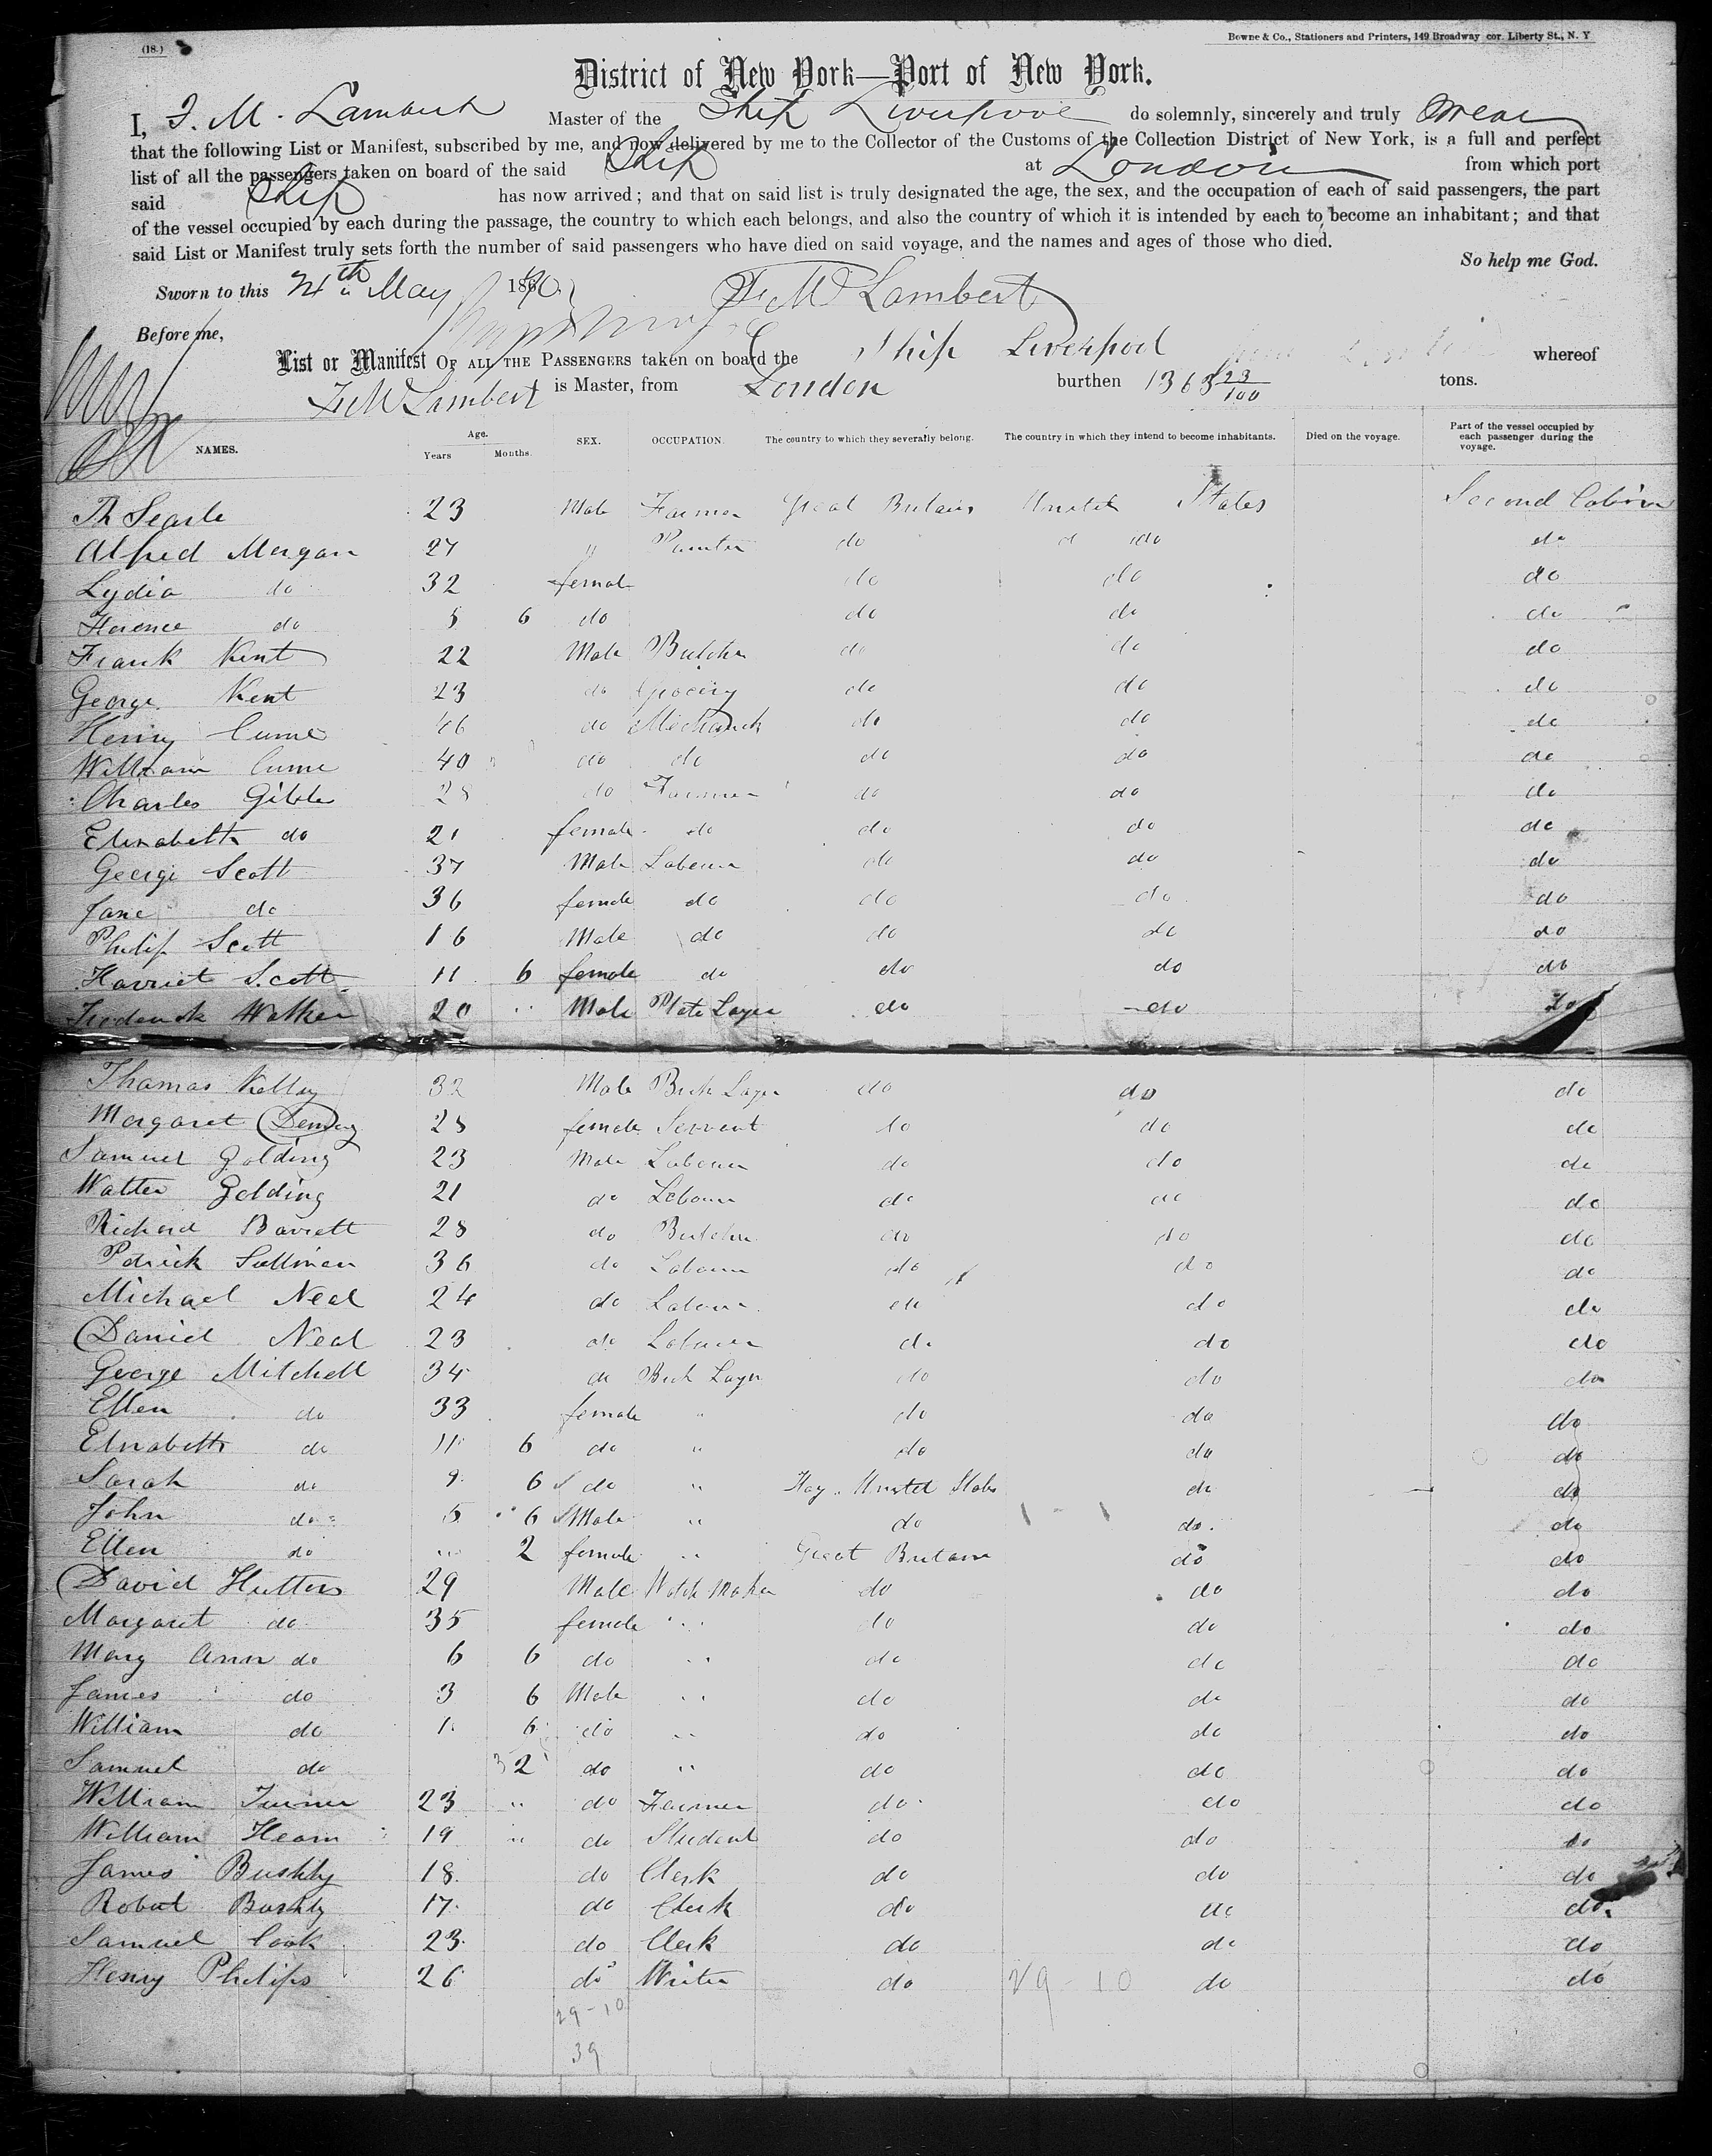 (18.)
Bowne & Co., Stationers and Printers, 149 Broadway cor. Liberty St., N. Y
District of New York—Port of New York.
I, F. M. Lambert Master of the Ship Liverpool do solemnly, sincerely and truly swear
that the following List or Manifest, subscribed by me, and now delivered by me to the Collector of the Customs of the Collection District of New York, is a full and perfect
list of all the passengers taken on board of the said Ship at London from which port
said Ship has now arrived; and that on said list is truly designated the age, the sex, and the occupation of each of said passengers, the part
of the vessel occupied by each during the passage, the country to which each belongs, and also the country of which it is intended by each to become an inhabitant; and that
said List or Manifest truly sets forth the number of said passengers who have died on said voyage, and the names and ages of those who died.
So help me God.
Sworn to this th May 18 F. M Lambert
Before me,
List or Manifest OF ALL THE PASSENGERS taken on board the Ship Liverpool whereof
F. M Lambert is Master, from London burthen 1363 23/100 tons.
NAMES. Age. Years Months. SEX. OCCUPATION. The country to which they severally belong. The country in which they intend to become inhabitants. Died on the voyage. Part of the vessel occupied by each passenger during the voyage.
Th Searle 23 Male Farmer Great Britain United States Second Cabin
Alfred Morgan 27 " Painter do do do
Lydia do 32 female do do do
Florence do 5 6 do do do do
Frank Kent 22 Male Butcher do do do
George Kent 23 do Grocery do do do
Henry 46 do Mechanick do do do
William 40 do do do do do
Charles Gibbs 28 do Farmer do do do
Elisabeth do 21 female do do do do
George Scott 37 Male Labourer do do do
Jane do 36 female do do do do
Philip Scott 16 Male do do do do
Harriet Scott 11 6 female do do do do
Frederick Walker 20 " Male Plate Layer do do do
Thomas Kelley 32 Male Brick Layer do do do
Margaret 28 female Servent do do do
Samuel Golding 23 Male Labourer do do do
Walter Golding 21 do Labourer do do do
Richard Barrett 28 do Butcher do do do
Patrick Sullivan 36 do Labourer do do do
Michael Neal 24 do Labourer do do do
Daniel Neal 23 do Labourer do do do
George Mitchell 34 do Brick Layer do do do
Ellen do 33 female " do do do
Elisabeth do 11 6 do " do do do
Sarah do 9 6 do " United States do do
John do 5 6 Male " do do do
Ellen do " 2 female " Great Britain do do
David Hutton 29 Male Watch Maker do do do
Margaret do 35 female " do do do
Mary Ann do 6 6 do " do do do
James do 3 6 Male " do do do
William do 1 6 do " do do do
Samuel do 2 do " do do do
William Turner 23 " do Farmer do do do
William Hearn 19 " do Student do do do
James Bushby 18 do Clerk do do do
Robert Bushby 17 do Clerk do do do
Samuel Cook 23 do Clerk do do do
Henry Philips 26 do Writer do 29-10 do do
29-10
39